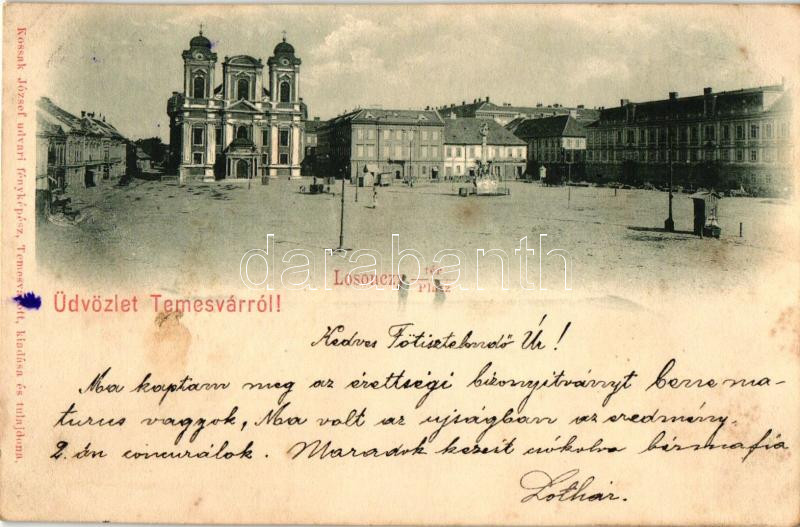 Kossak József udvari fényképész, Temesvárott, kiadása és tulajdona.
darabanth.com
Losonczy-tér
Platz
Üdvözlet Temesvárról!
Kedves Főtisztelendő Úr!
Ma kaptam meg az érettségi bizonyítványt bene ma-
turus vagyok, Ma volt az ujságban az eredmény.
2. án concurálok. Maradok kezeit csókolva bérmafia
Lothár.